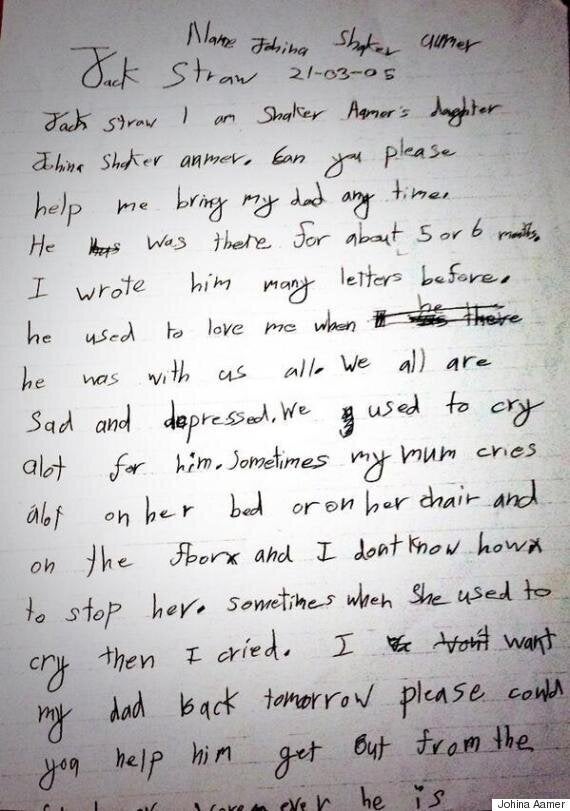 Name Johina Shaker aamer
Jack Straw 21-03-05
Jack straw I am Shaker Aamer's daghter
Johina Shaker aamer. Can you please
help me bring my dad any time.
He was there for about 5 or 6 months.
I wrote him many letters before.
he used to love me when he
he was with us all. We all are
Sad and depressed. We used to cry
alot for him. Sometimes my mum cries
alot on her bed or on her chair and
on the floor and I dont know how
to stop her. sometimes when She used to
cry then I cried. I want
my dad back tomorrow please could
you help him get out from the
ever he is
Johina Aamer